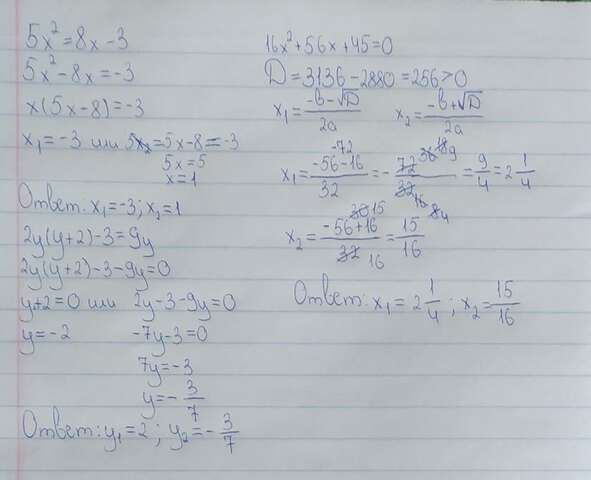 5x²=8x-3
5x²-8x=-3
x(5x-8)=-3
x₁=-3 или 5x₂=5x-8=-3
5x=5
x=1
Ответ: x₁=-3; x₂=1
2y(y+2)-3=9y
2y(y+2)-3-9y=0
y+2=0 или 2y-3-9y=0
y=-2 -7y-3=0
7y=-3
y=-3/7
Ответ: y₁=2; y₂=-3/7
16x²+56x+45=0
D=3136-2880=256>0
x₁=(-b-√D)/2a x₂=(-b+√D)/2a
-72
x₁=(-56-16)/32=-72/32 36 18 9 16 8 4=9/4=2 1/4
30 15
x₂=(-56+16)/32 16=15/16
Ответ: x₁=2 1/4; x₂=15/16